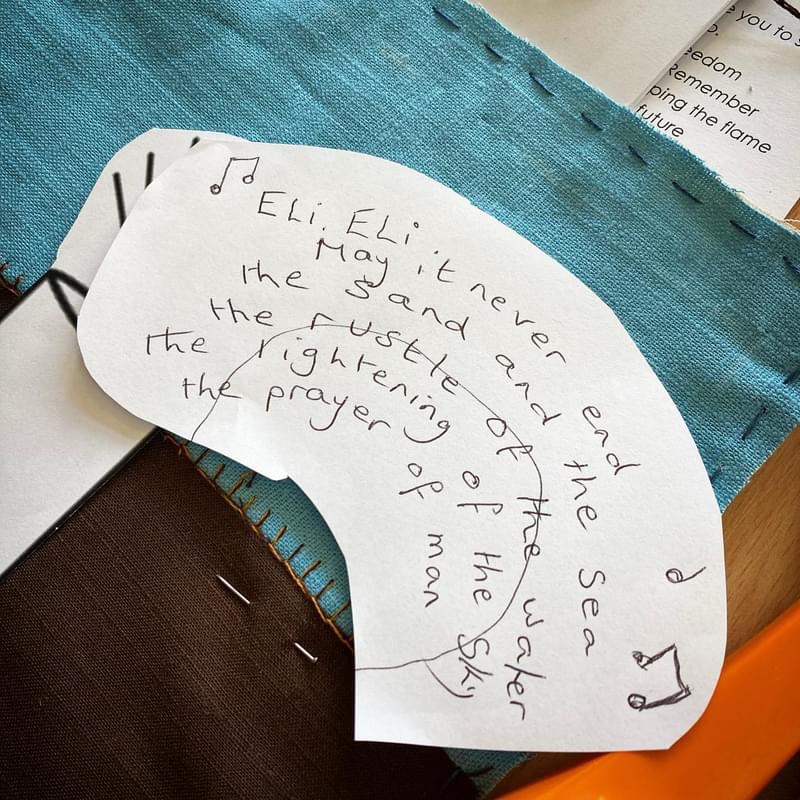 Eli, Eli
May it never end
the sand and the Sea
the rustle of the water
the rightening of the sky
the prayer of man
e you to s
o.
eedom
Remember
ping the flame
future